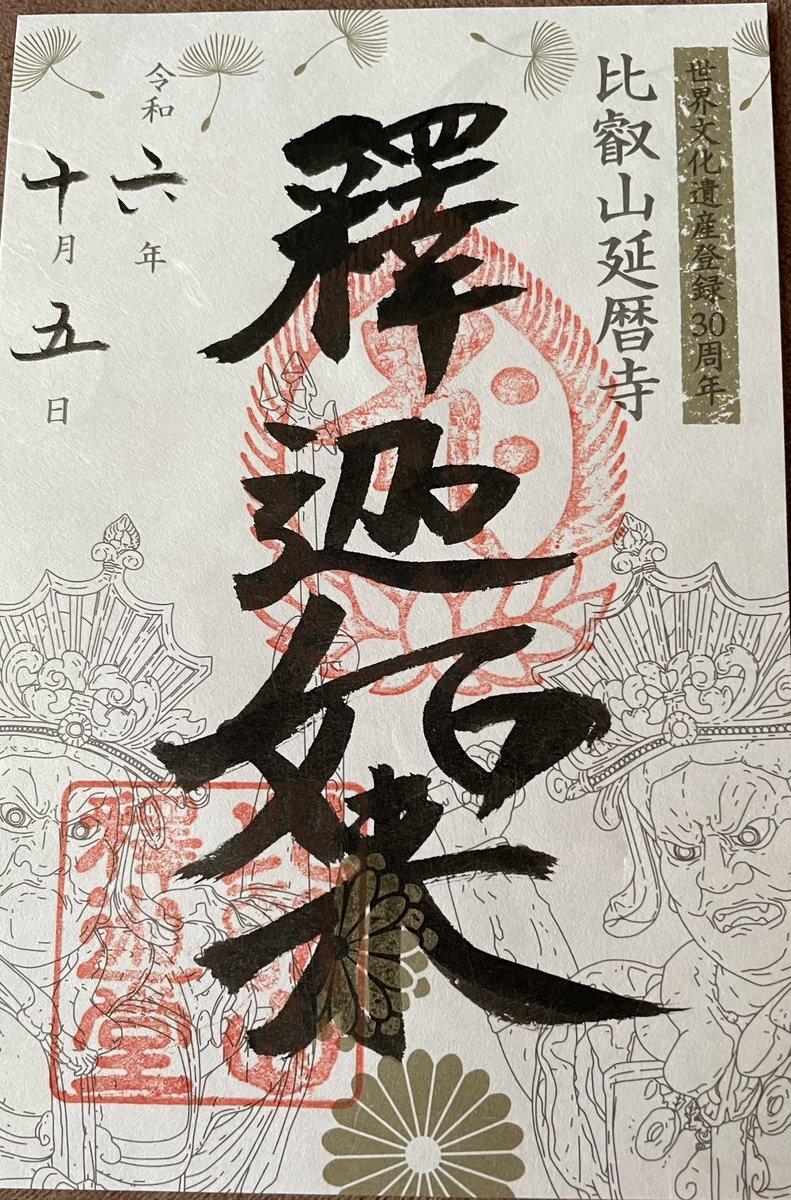 世界文化遺産登録30周年
比叡山延暦寺
釋迦如来
令和六年
十月五日
釋迦堂